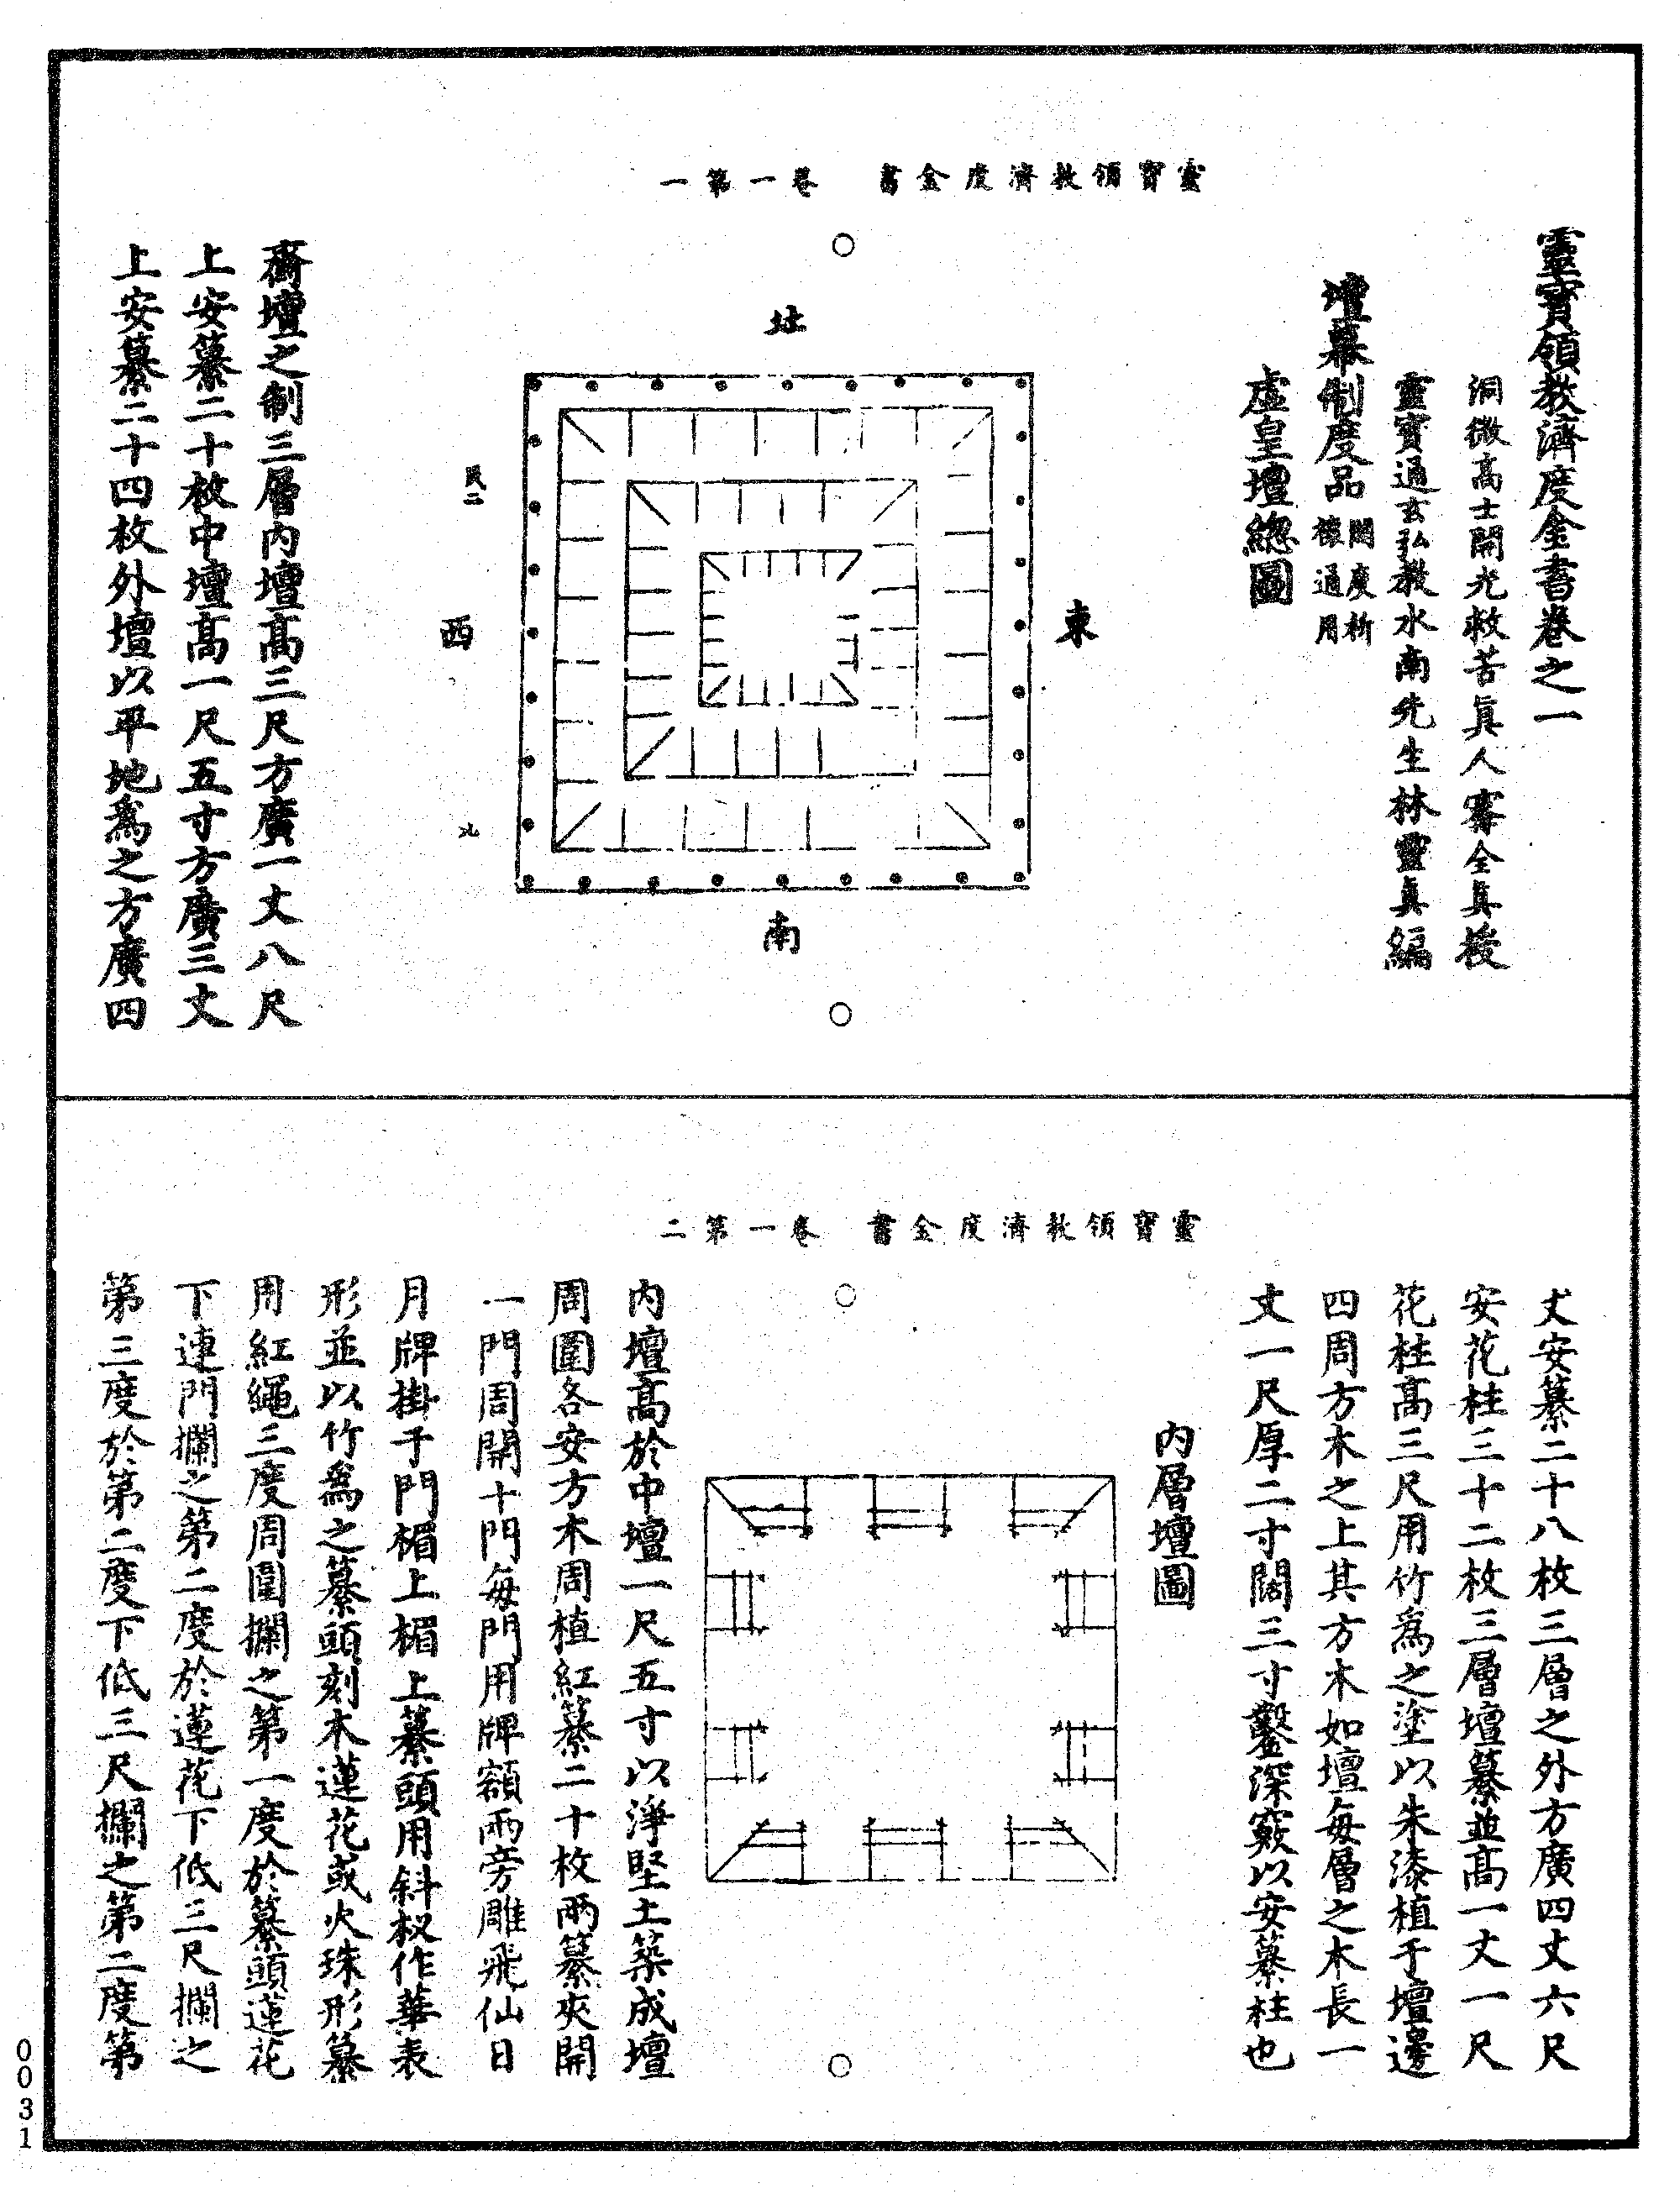 靈寶領教濟度金書　卷一第一
靈寶領教濟度金書卷之一
洞微高士開光救苦眞人寗全眞授
靈寶通玄弘教水南先生林靈眞編
壇幕制度品 開度祈禳通用
虛皇壇總圖
北
東
西
南
齋壇之制三層內壇高三尺方廣一丈八尺
上安纂二十枚中壇高一尺五寸方廣三丈
上安纂二十四枚外壇以平地爲之方廣四
靈寶領教濟度金書　卷一第二
丈安纂二十八枚三層之外方廣四丈六尺
安花柱三十二枚三層壇纂並高一丈一尺
花柱高三尺用竹爲之塗以朱漆植于壇邊
四周方木之上其方木如壇每層之木長一
丈一尺厚二寸闊三寸鑿深竅以安纂柱也
內層壇圖
內壇高於中壇一尺五寸以淨堅土築成壇
周圍各安方木周植紅纂二十枚兩纂夾開
一門周開十門每門用牌額兩旁雕飛仙日
月牌掛于門楣上楣上纂頭用斜杈作華表
形並以竹爲之纂頭刻木蓮花或火珠形纂
用紅繩三度周圍攔之第一度於纂頭蓮花
下連門攔之第二度於蓮花下低三尺攔之
第三度於第二度下低三尺攔之第二度第
0031